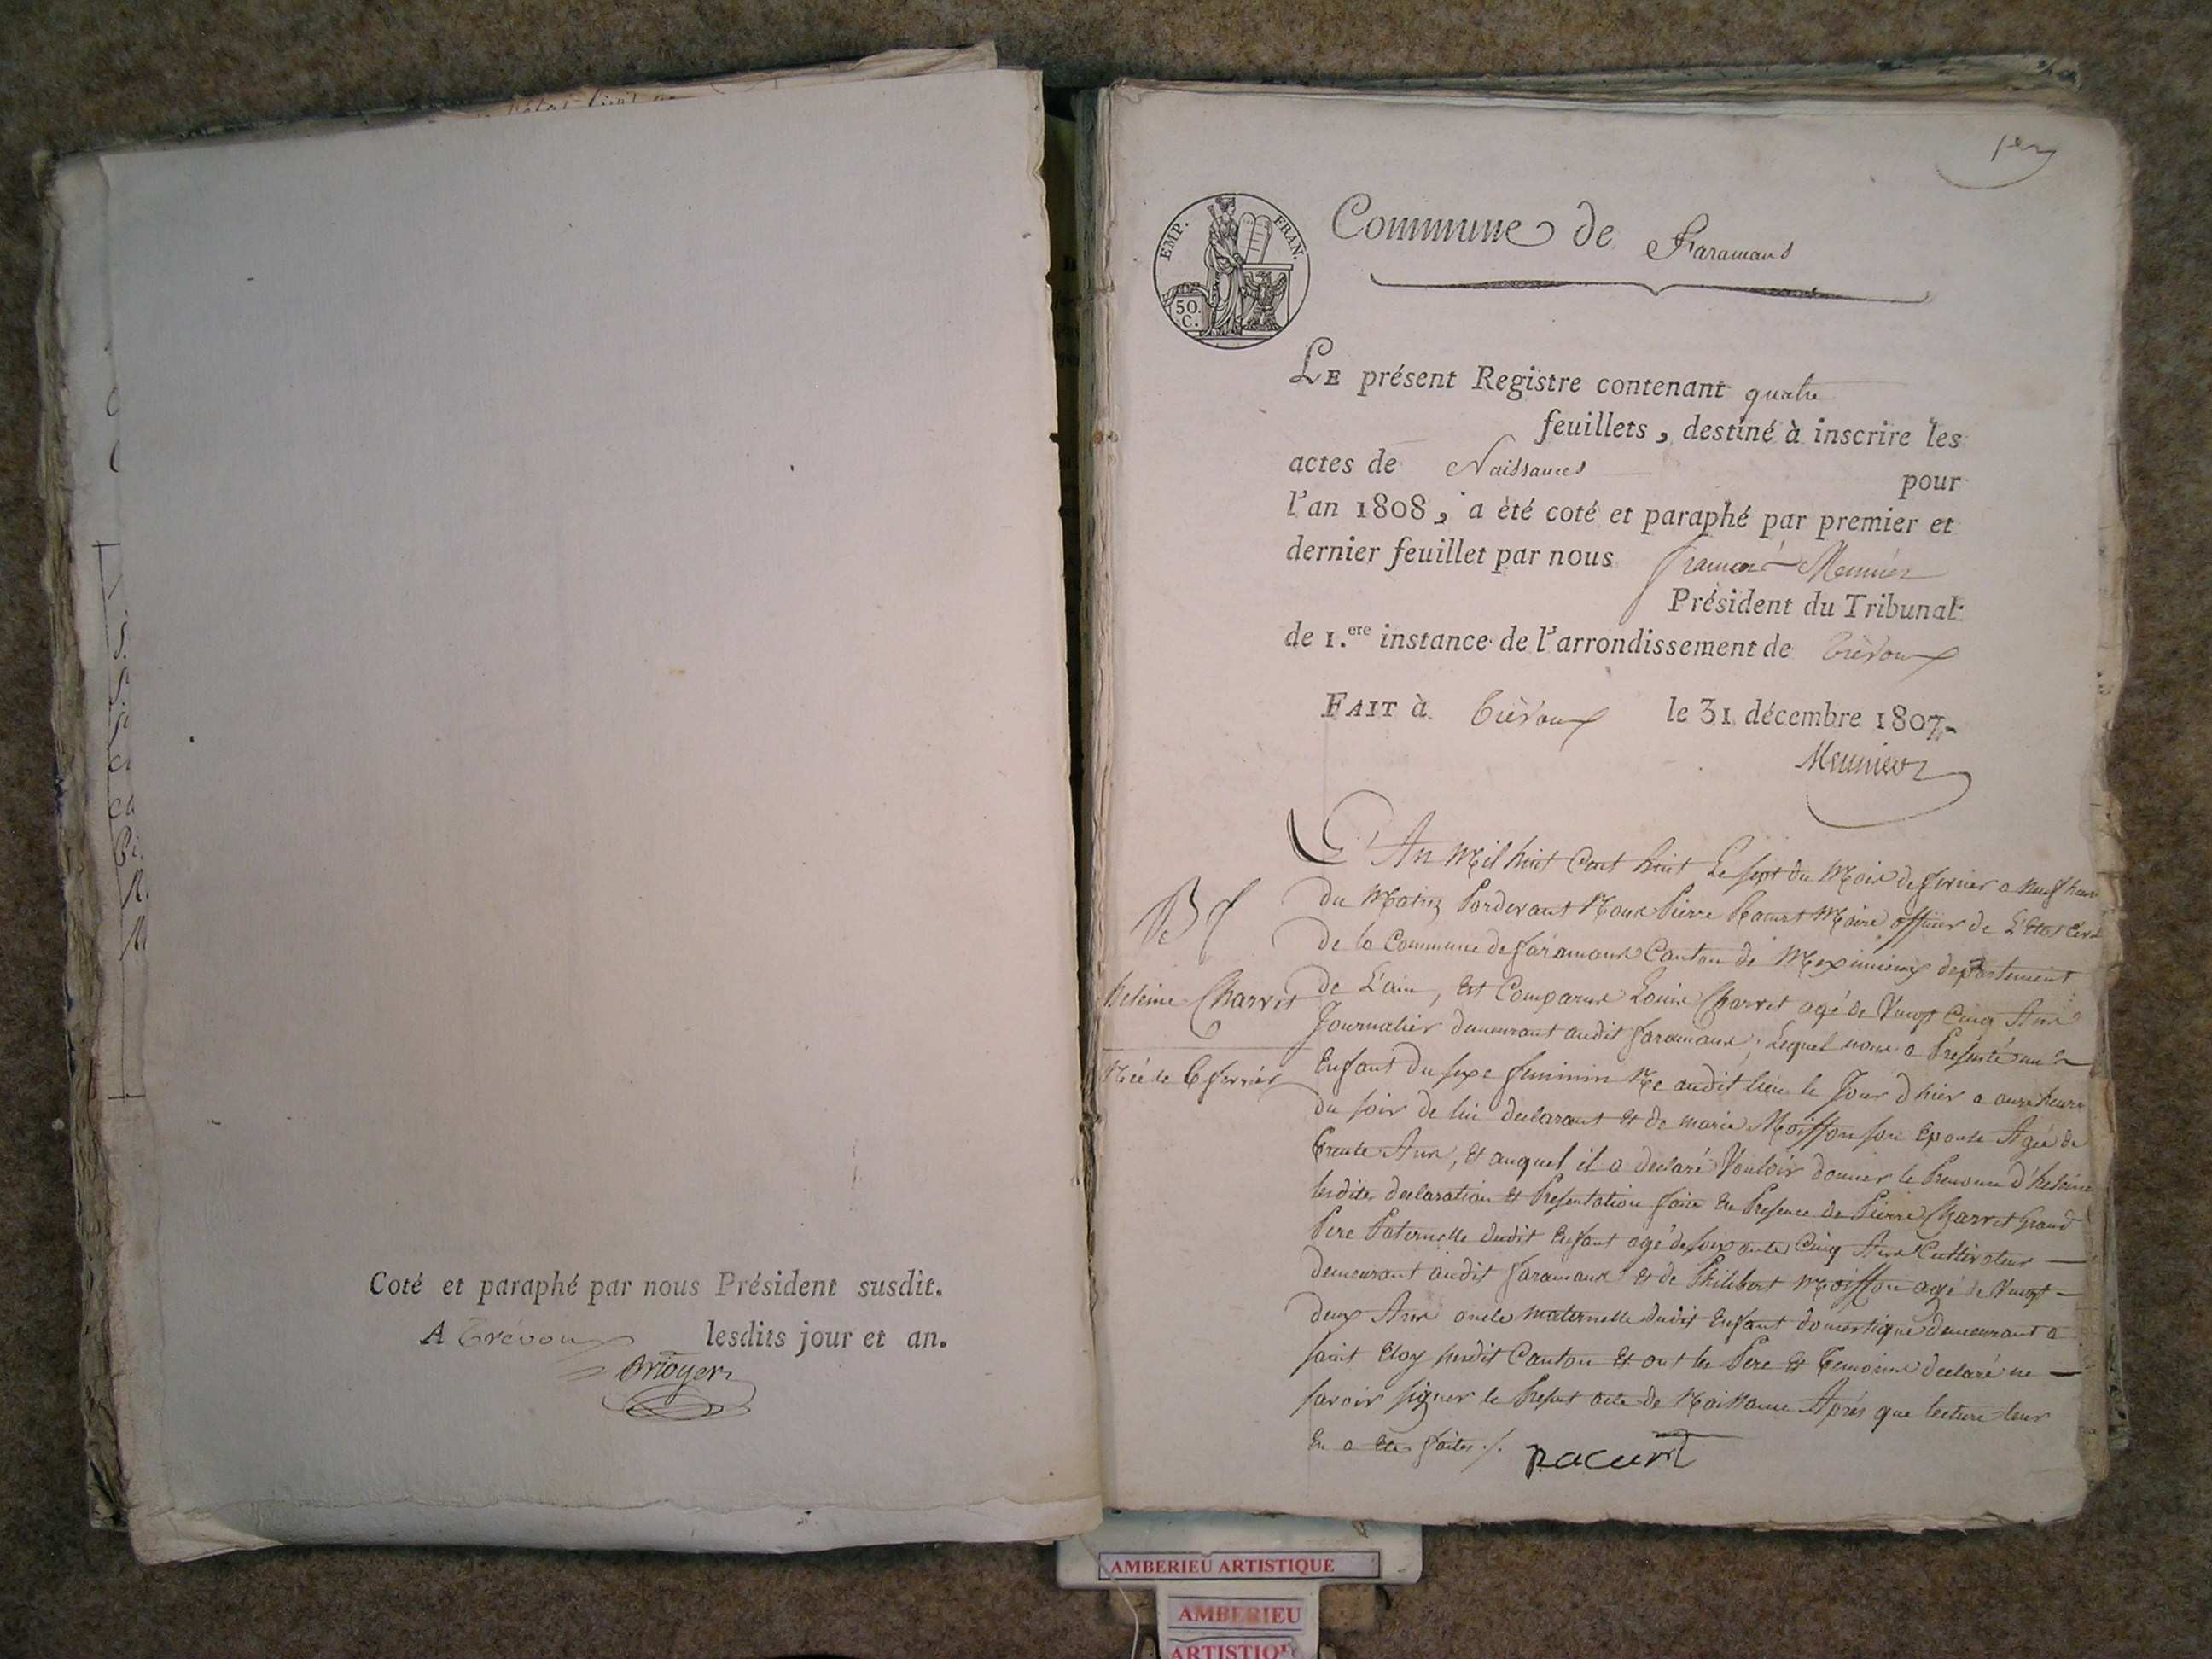 Coté et paraphé par nous Président susdit.
A Trévoux lesdits jour et an.
1er
EMP. FRAN.
50. C.
Commune de Faramans
LE présent Registre contenant quatre
feuillets, destiné à inscrire les
actes de Naissances pour
l'an 1808, a été coté et paraphé par premier et
dernier feuillet par nous François Meunier
Président du Tribunal
de 1.ere instance de l'arrondissement de Trévoux
FAIT à Trévoux le 31 décembre 1807.
Meunier
L'An Mil huit Cent huit Le sept du Mois de fevrier a Neuf heure
du Matin Pardevant Nous Pierre Racurt Maire officier de L'Etat Civil
de la Commune de faramans Canton de Meximieux departement
de L'ain, Est Comparus Louis Charvet agé de Vingt Cinq Ans
Journalier demeurant audit faramans, Lequel nous a Presenté un
Enfant du sexe feminin Né audit lieu le Jour d'hier a onze heure
du soir de lui declarant et de marie Moiffon son Epouse Agée de
trente Ans, Et auquel il a declaré Vouloir donner le Prenom d'heleine
lesdites declaration et Presentation faites En Presence de Pierre Charvet Grand
Pere Paternelle dudit Enfant agé de soixante Cinq Ans Cultivateur
demeurant audit faramans et de Philibert Moiffon agé de Vingt
deux Ans oncle maternelle dudit Enfant domestique demeurant a
saint Eloy susdit Canton Et ont les Pere et Temoins declaré ne
savoir signer le Present acte de Naissance Après que lecture leur
En a Eté faites ./.
Racurt
heleine Charvet
Née le 6 fevrier
AMBERIEU ARTISTIQUE
AMBERIEU
ARTISTIQUE